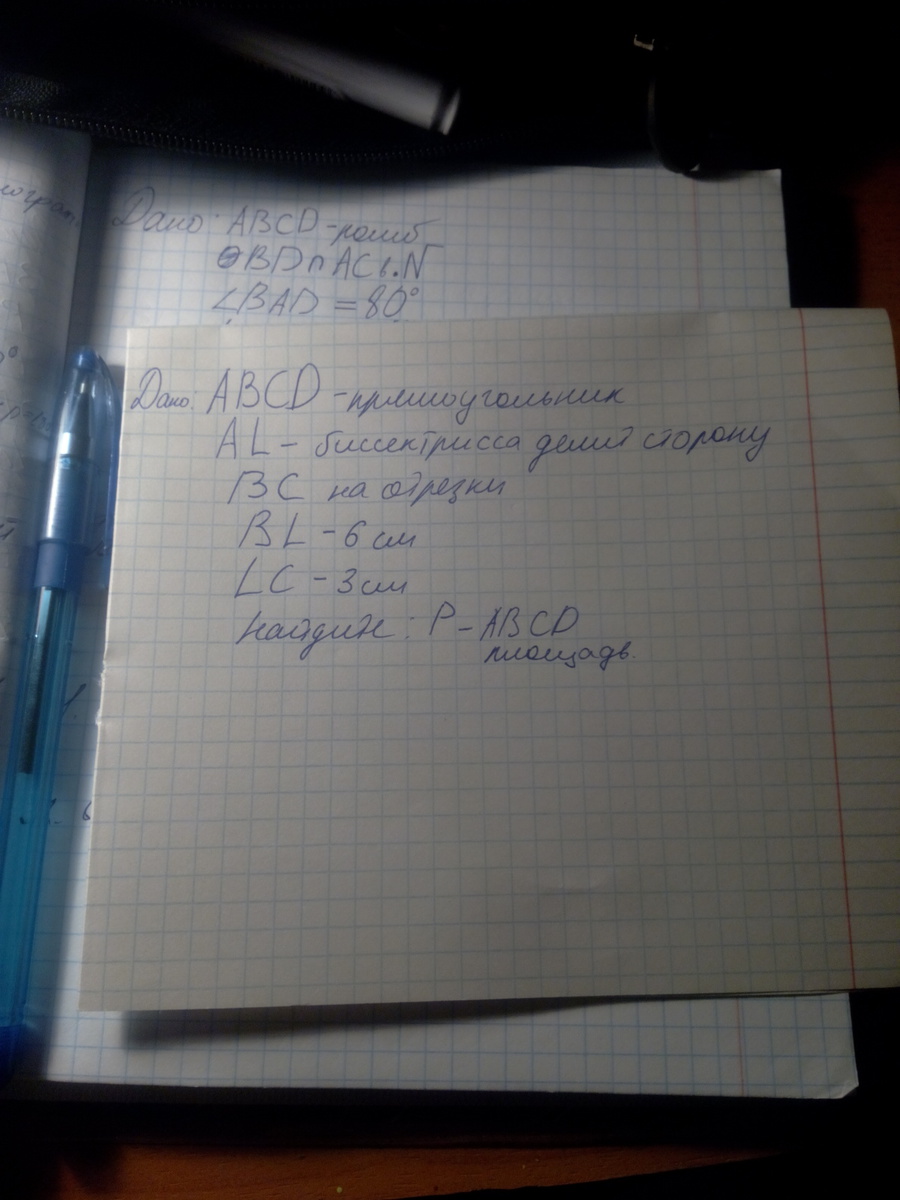 Дано: ABCD - ромб
BD ∩ AC в т. N
∠BAD = 80°
Дано: ABCD - прямоугольник
AL - биссектрисса делит сторону
BC на отрезки
BL - 6 см
LC - 3 см
Найдите: P - ABCD
площадь.